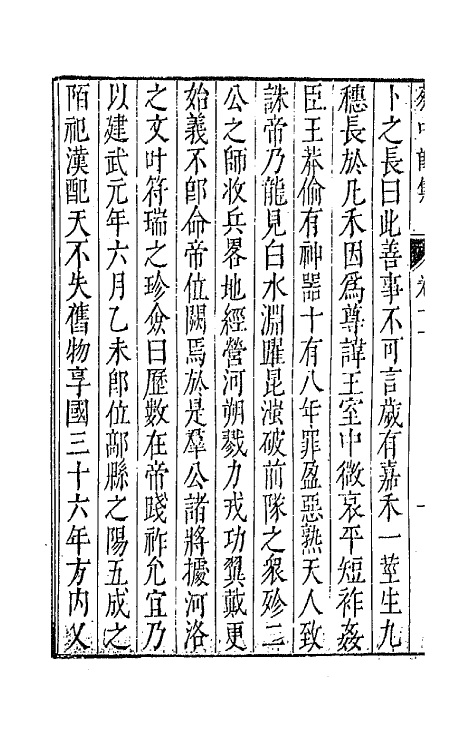 卜之長曰此善事不可言歲有嘉禾一莖生九
穗長於凡禾因爲尊諱王室中微哀平短祚姦
臣王莽偷有神器十有八年罪盈惡熟天人致
誅帝乃龍見白水淵躍昆滍破前隊之衆殄二
公之師收兵畧地經營河朔戮力戎功翼戴更
始義不卽命帝位闕焉於是羣公諸將據河洛
之文叶符瑞之珍僉曰歷數在帝踐祚允宜乃
以建武元年六月乙未卽位鄗縣之陽五成之
陌祀漢配天不失舊物享國三十六年方内乂